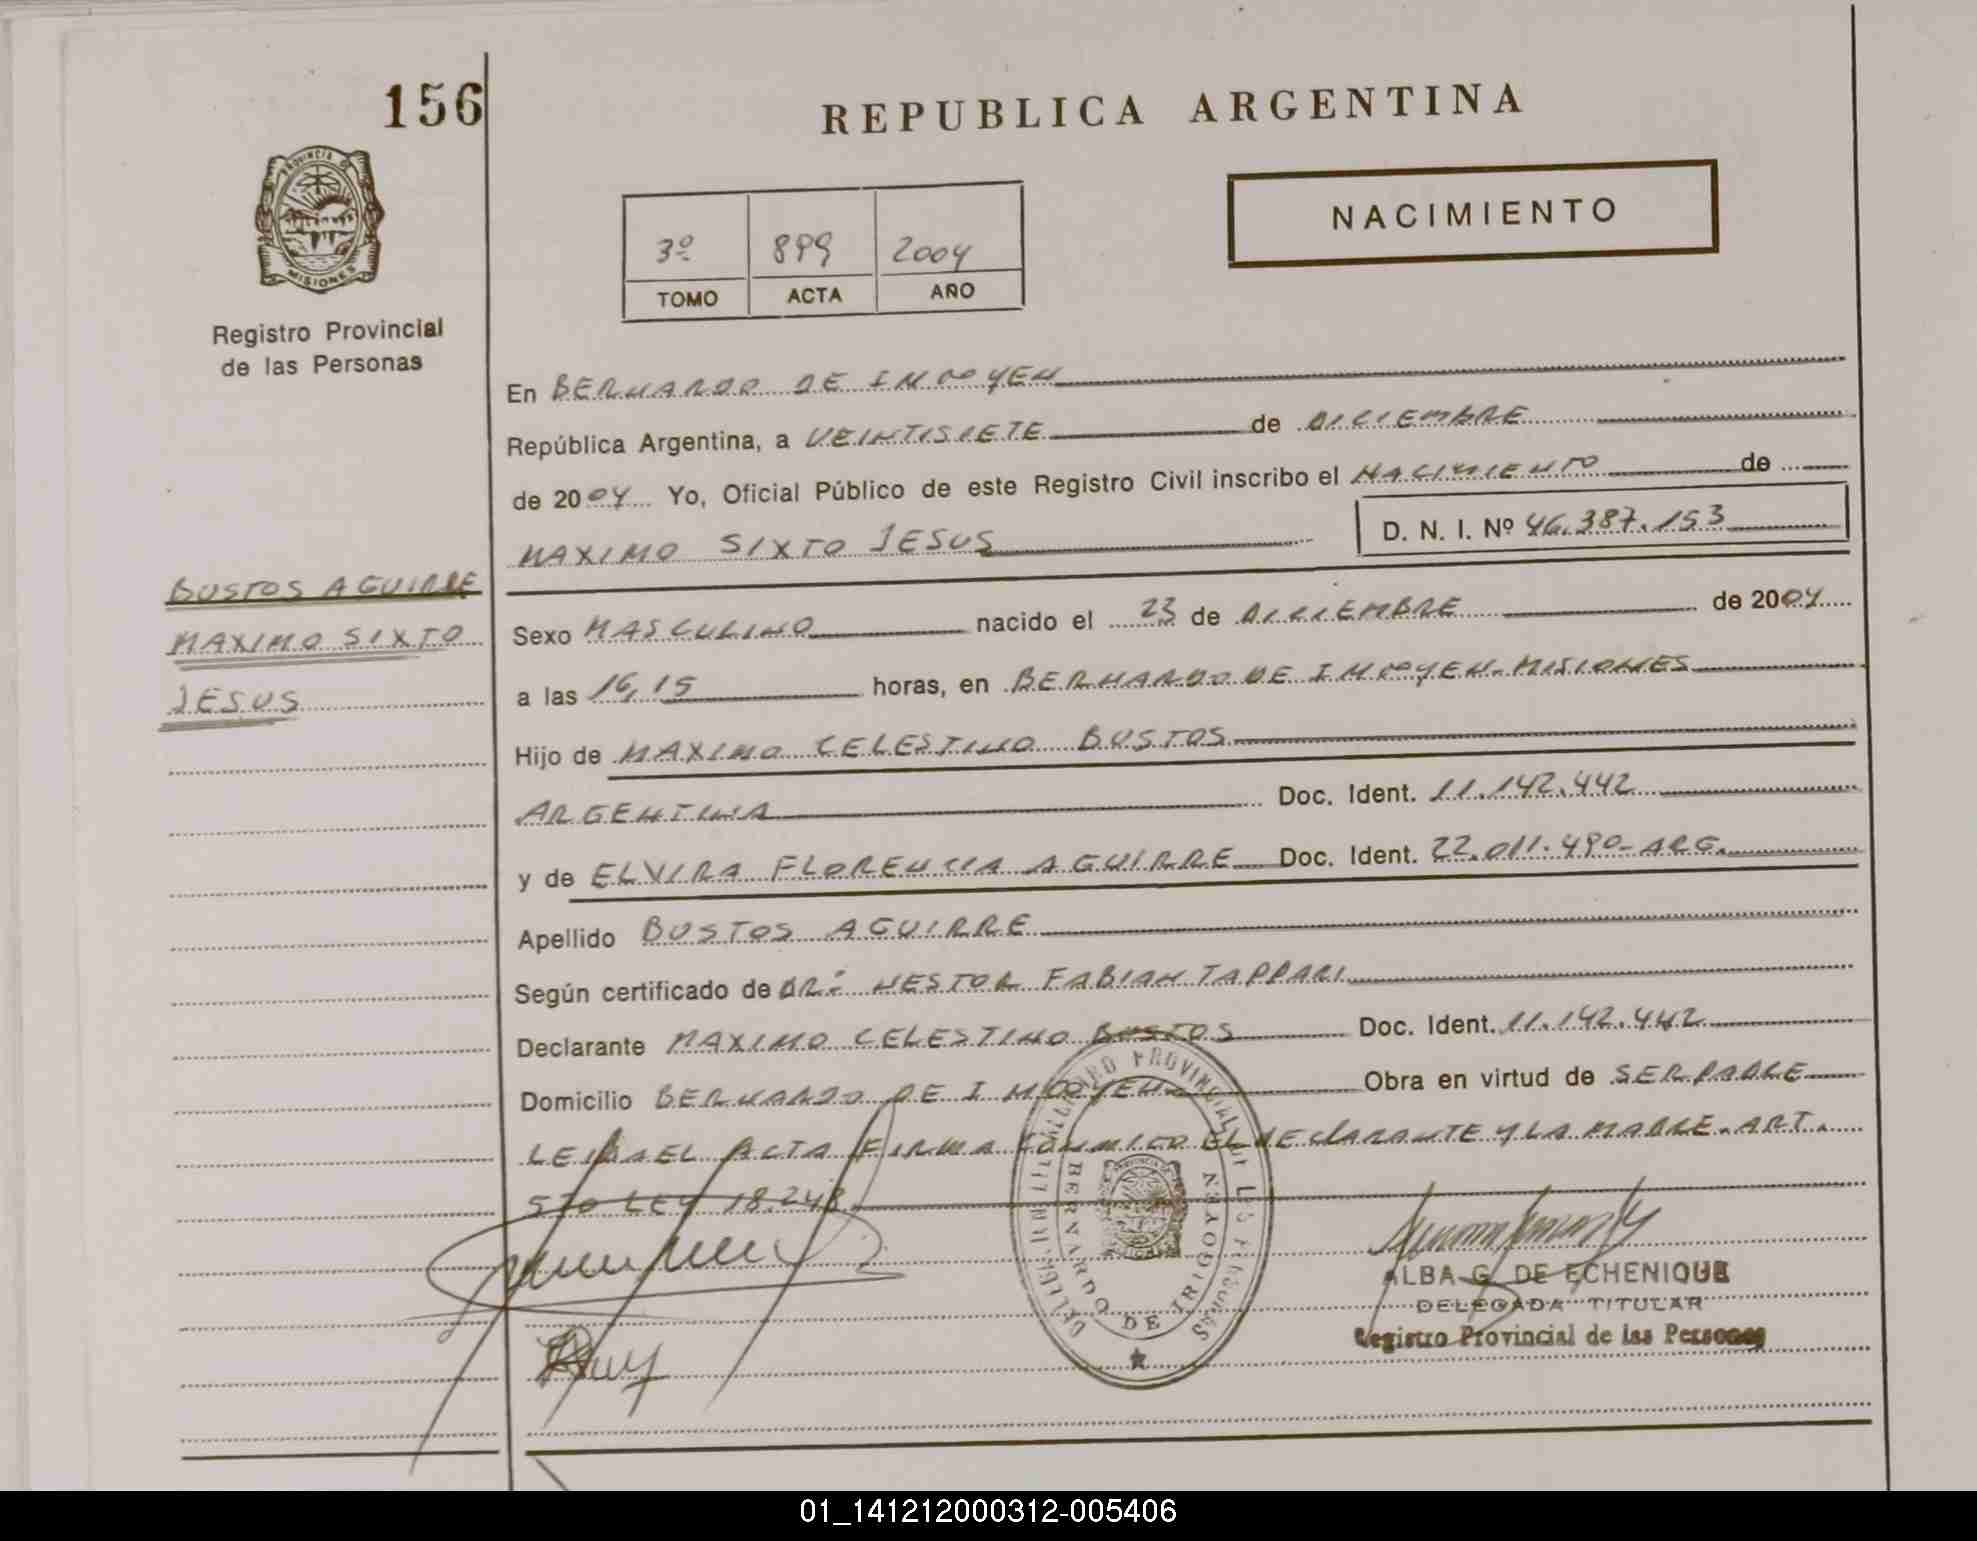 156
REPUBLICA ARGENTINA
PROVINCIA DE
MISIONES
Registro Provincial
de las Personas
NACIMIENTO
3º 899 2004
TOMO ACTA AÑO
En BERNARDO DE IRIGOYEN
República Argentina, a VEINTISIETE de DICIEMBRE
de 2004 Yo, Oficial Público de este Registro Civil inscribo el NACIMIENTO de
MAXIMO SIXTO JESUS D. N. I. Nº 46.387.153
BUSTOS AGUIRRE
MAXIMO SIXTO
JESUS
Sexo MASCULINO nacido el 23 de DICIEMBRE de 2004
a las 16,15 horas, en BERNARDO DE IRIGOYEN-MISIONES
Hijo de MAXIMO CELESTINO BUSTOS
ARGENTINA Doc. Ident. 11.142.442
y de ELVIRA FLORENCIA AGUIRRE Doc. Ident. 22.011.490-ARG.
Apellido BUSTOS AGUIRRE
Según certificado de DR: NESTOR FABIAN TAPPARI
Declarante MAXIMO CELESTINO BUSTOS Doc. Ident. 11.142.442
Domicilio BERNARDO DE IRIGOYEN Obra en virtud de SER PADRE
LEIDA EL ACTA FIRMA CONMIGO EL DECLARANTE Y LA MADRE-ART.
5TO LEY 18.248
REGISTRO PROVINCIAL DE LAS PERSONAS
BERNARDO DE IRIGOYEN
ALBA G. DE ECHENIQUE
DELEGADA TITULAR
Registro Provincial de las Personas
01_141212000312-005406